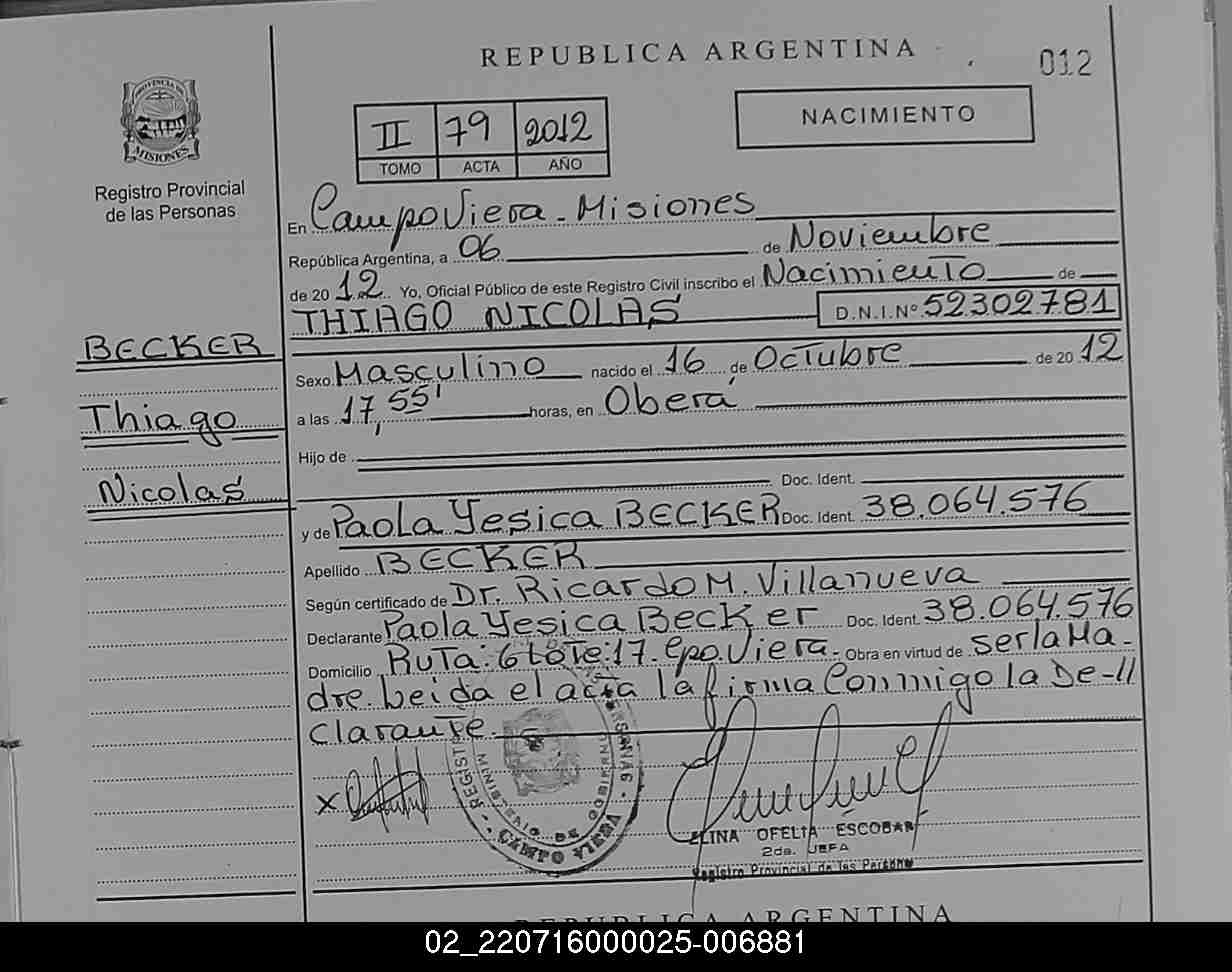 REPUBLICA ARGENTINA
012
PROVINCIA DE
MISIONES
Registro Provincial
de las Personas
II 79 2012
TOMO ACTA AÑO
NACIMIENTO
En Campo Viera - Misiones
República Argentina, a 06 de Noviembre
de 2012 Yo, Oficial Público de este Registro Civil inscribo el Nacimiento de
THIAGO NICOLAS D.N.I.Nº 52302781
BECKER
Thiago
Nicolas
Sexo Masculino nacido el 16 de Octubre de 2012
a las 17,55' horas, en Oberá
Hijo de
Doc. Ident.
y de Paola Yesica BECKER Doc. Ident. 38.064.576
Apellido BECKER
Según certificado de Dr. Ricardo M. Villanueva
Declarante Paola Yesica Becker Doc. Ident. 38.064.576
Domicilio Ruta: 6 Lote: 17. Cpo. Viera - Obra en virtud de ser la Ma-
dre. Leida el acta la firma Conmigo la De-//
clarante.
x
REGIST
MINISTERIO DE GOBIERNO
CAMPO VIERA
ELINA OFELIA ESCOBAR
2da. JEFA
Registro Provincial de las Personas
REPUBLICA ARGENTINA
02_220716000025-006881